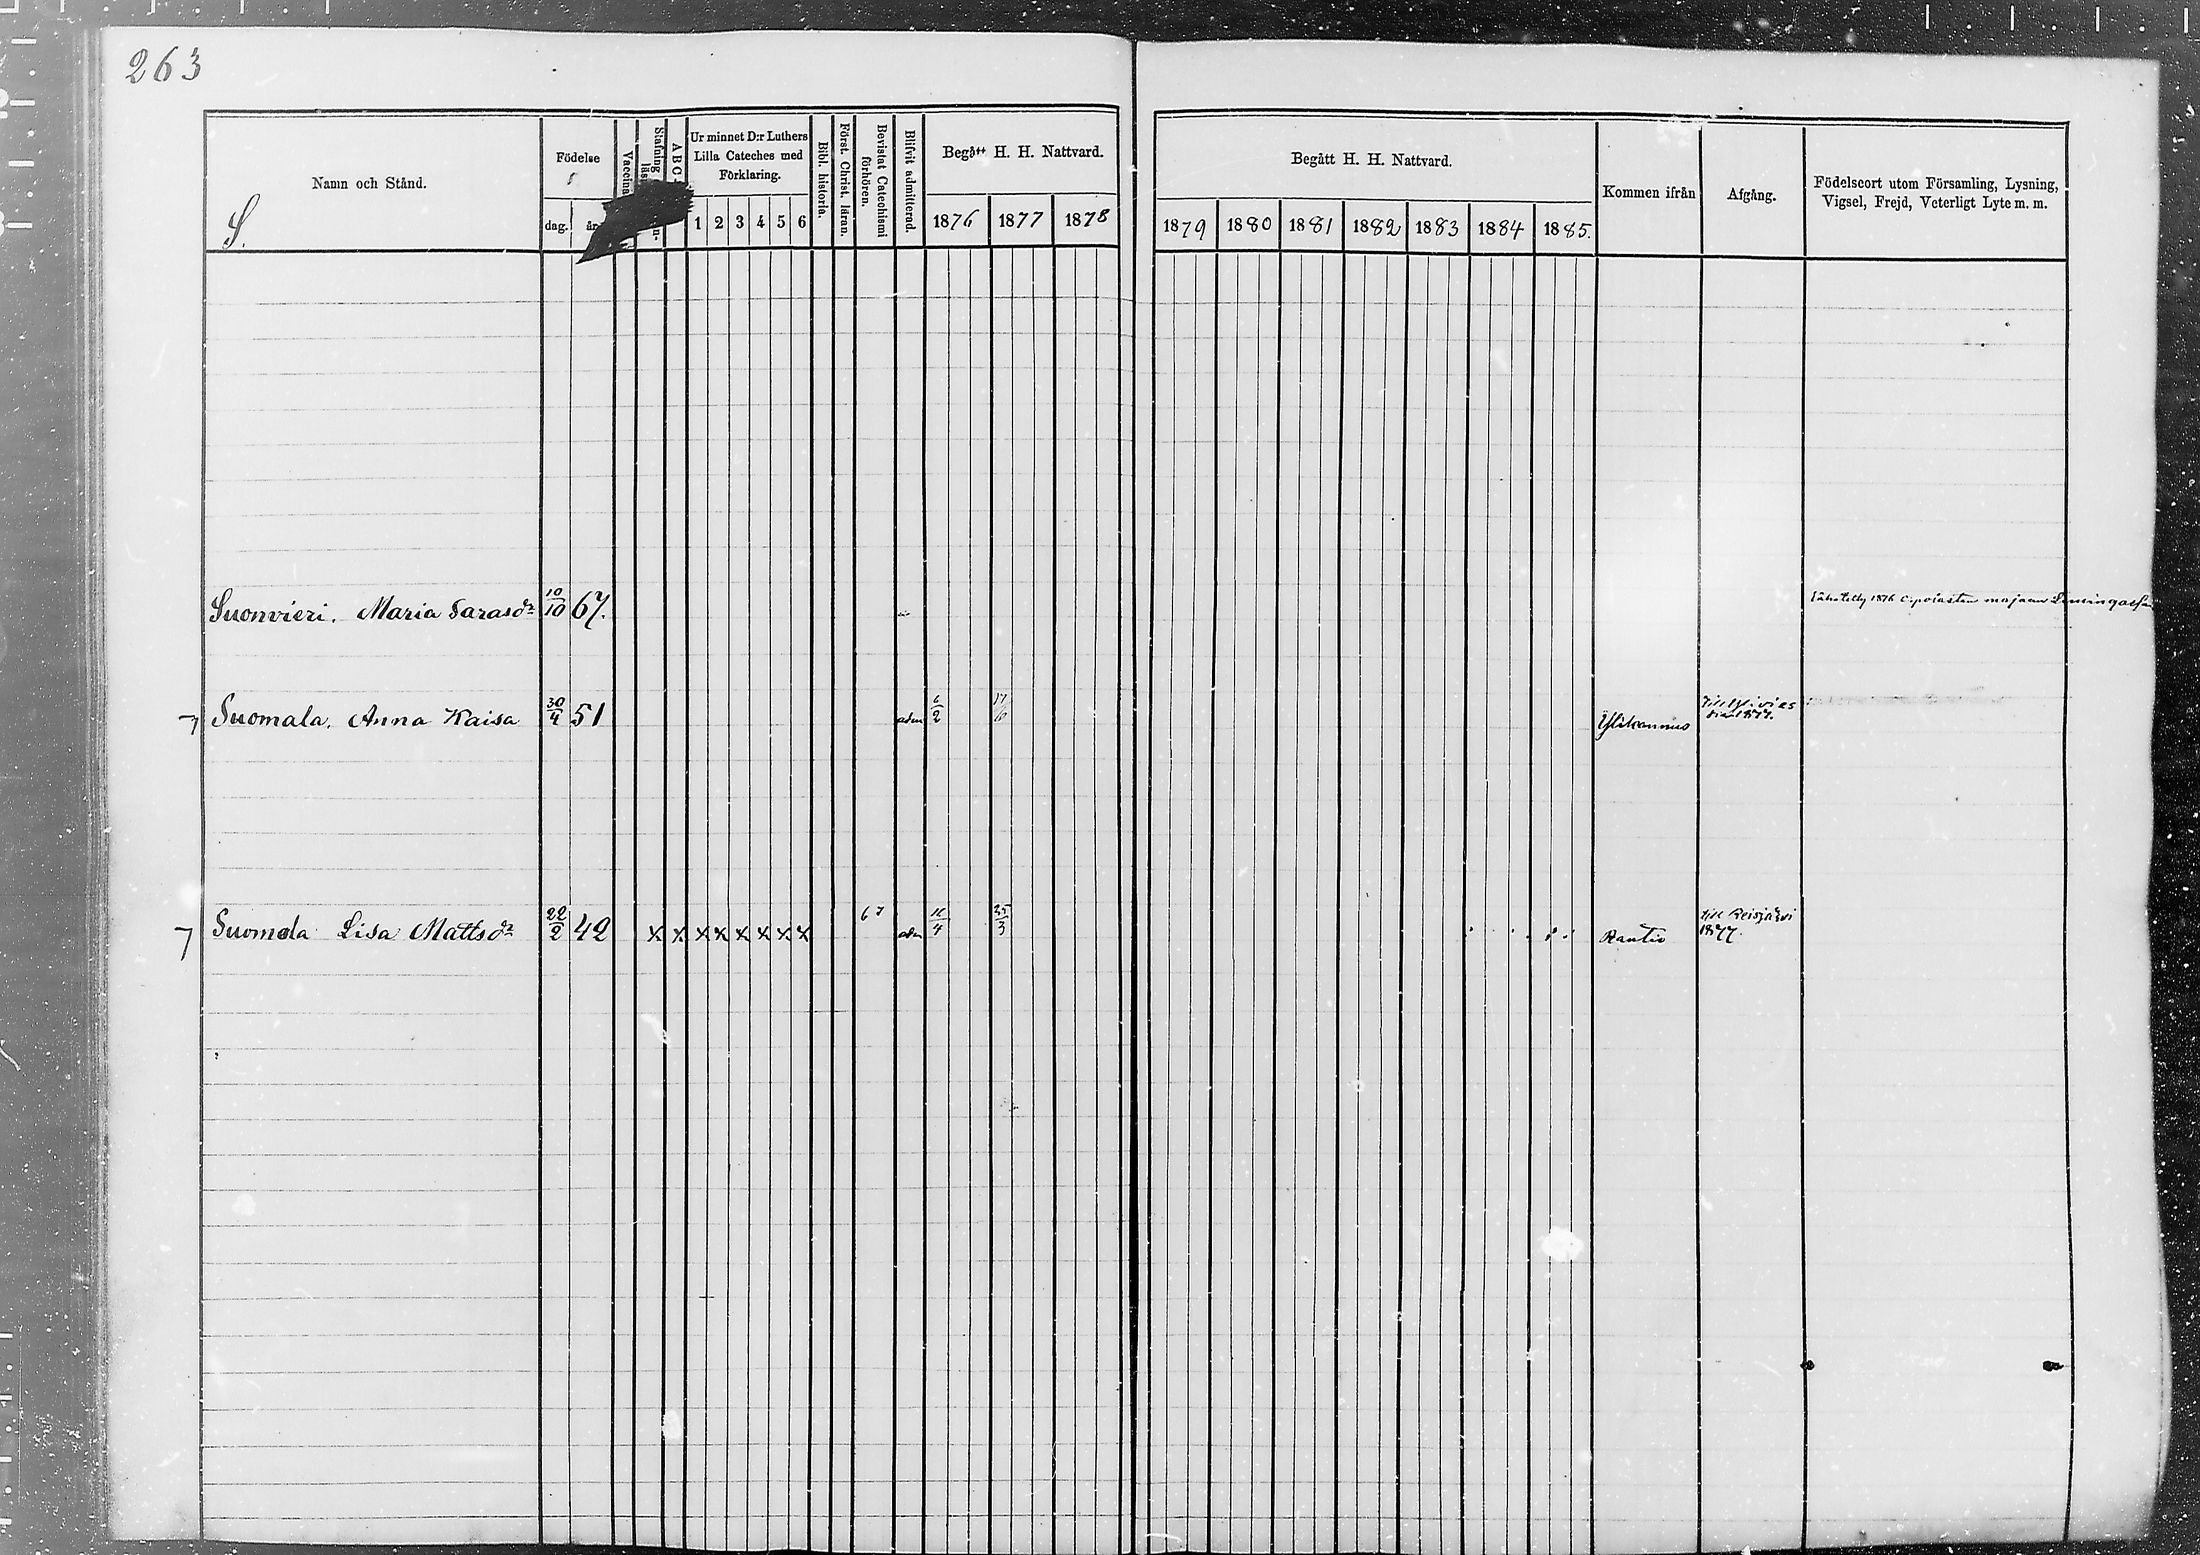 263
Namn och Stånd.
S.
Födelse
dag.
år
Vaccina
Stafning
ABC-
Ur minnet D:r Luthers
Lilla Cateches med
Förklaring.
1 2 3 4 5 6
Bibl. historia.
Först. Christ. läran.
Bevistat Catechismi
förhören.
Blifvit admitterad.
Begått H. H. Nattvard.
1876 1877 1878
Begått H. H. Nattvard.
1879 1880 1881 1882 1883 1884 1885.
Kommen ifrån
Afgång.
Födelseort utom Församling, Lysning,
Vigsel, Frejd, Veterligt Lyte m. m.
Suonvieri. Maria Sarasdr 10/10 67. 1876
7 Suomala. Anna Kaisa 30/4 51 adm 6/2 17/6 Ylikannus
1877.
7 Suomela Lisa Mattsdr 22/2 42 x x x x x x x x 67 adm 16/4 25/3 Rautio till Reisjärvi
1877.